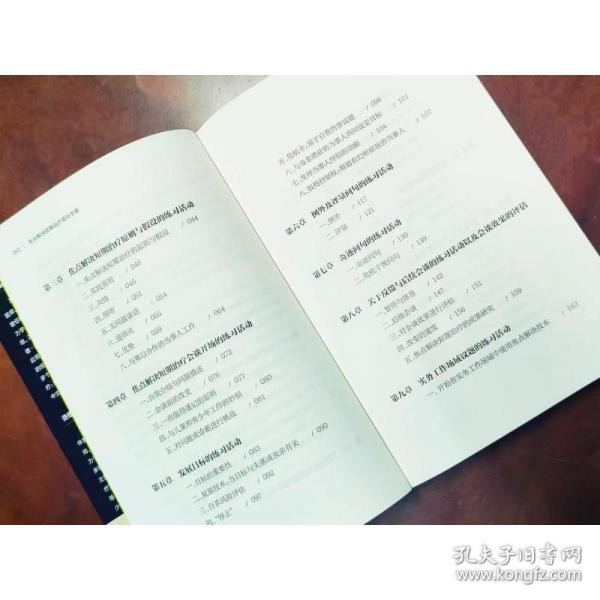 焦点解决短期治疗培训手册
第三章 焦点解决短期治疗原则与假设的练习活动
一、焦点解决短期治疗的原则与假设 / 044
二、实践原则 / 045
三、共情 / 045
四、倾听 / 051
五、无问题谈话 / 054
六、
七、优势 / 059
八、与难以合作的当事人工作 / 064
第四章 焦点解决短期治疗会谈开场的练习活动
一、自我介绍与问题描述 / 072
二、会谈前的改变 / 076
三、一些值得谨记的原则 / 077
四、与儿童和青少年工作的妙招 / 080
五、对问题或诊断进行挑战 / 081
第五章 发展目标的练习活动
一、目标的重要性 / 083
二、泉塘技术:当目标与失落或丧亲有关 / 090
三、自杀风险评估 / 092
四、“停止” / 097
五、危机卡:用于自我伤害议题 / 098
六、与身患绝症的当事人共同设定目标 / 101
七、发挥当事人科组的功能 / 104
八、取得控制权:跟随有幻听症状的当事人 / 107
第六章 例外及评量问句的练习活动
一、例外 / 117
二、评量 / 121
第七章 奇迹问句的练习活动
一、奇迹问句 / 130
二、危机干预问句 / 139
第八章 关于反馈与后续会谈的练习活动以及会谈效果的评估
一、暂停与休息 / 142
二、后续会谈 / 147
三、对会谈效果进行评估 / 151
四、改变的速度 / 156
五、焦点解决短期治疗的成果研究 / 159
第九章 实务工作场域议题的练习活动
一、开始在实务工作场域中使用焦点解决技术 / 163
孔夫子旧书网
www.kongfz.com